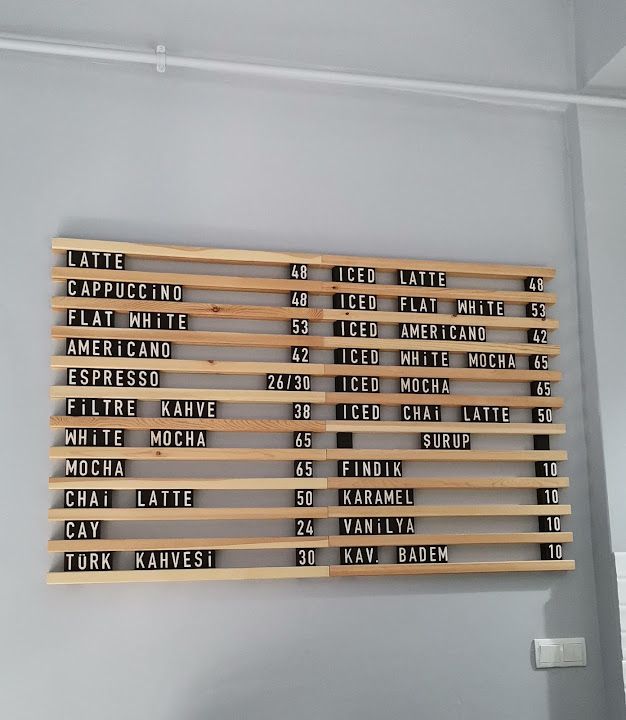 LATTE 48
CAPPUCCiNO 48
FLAT WHiTE 53
AMERiCANO 42
ESPRESSO 26/30
FiLTRE KAHVE 38
WHiTE MOCHA 65
MOCHA 65
CHAi LATTE 50
ÇAY 24
TÜRK KAHVESi 30
ICED LATTE 48
ICED FLAT WHiTE 53
ICED AMERiCANO 42
ICED WHiTE MOCHA 65
ICED MOCHA 65
ICED CHAi LATTE 50
ŞURUP
FINDIK 10
KARAMEL 10
VANiLYA 10
KAV. BADEM 10